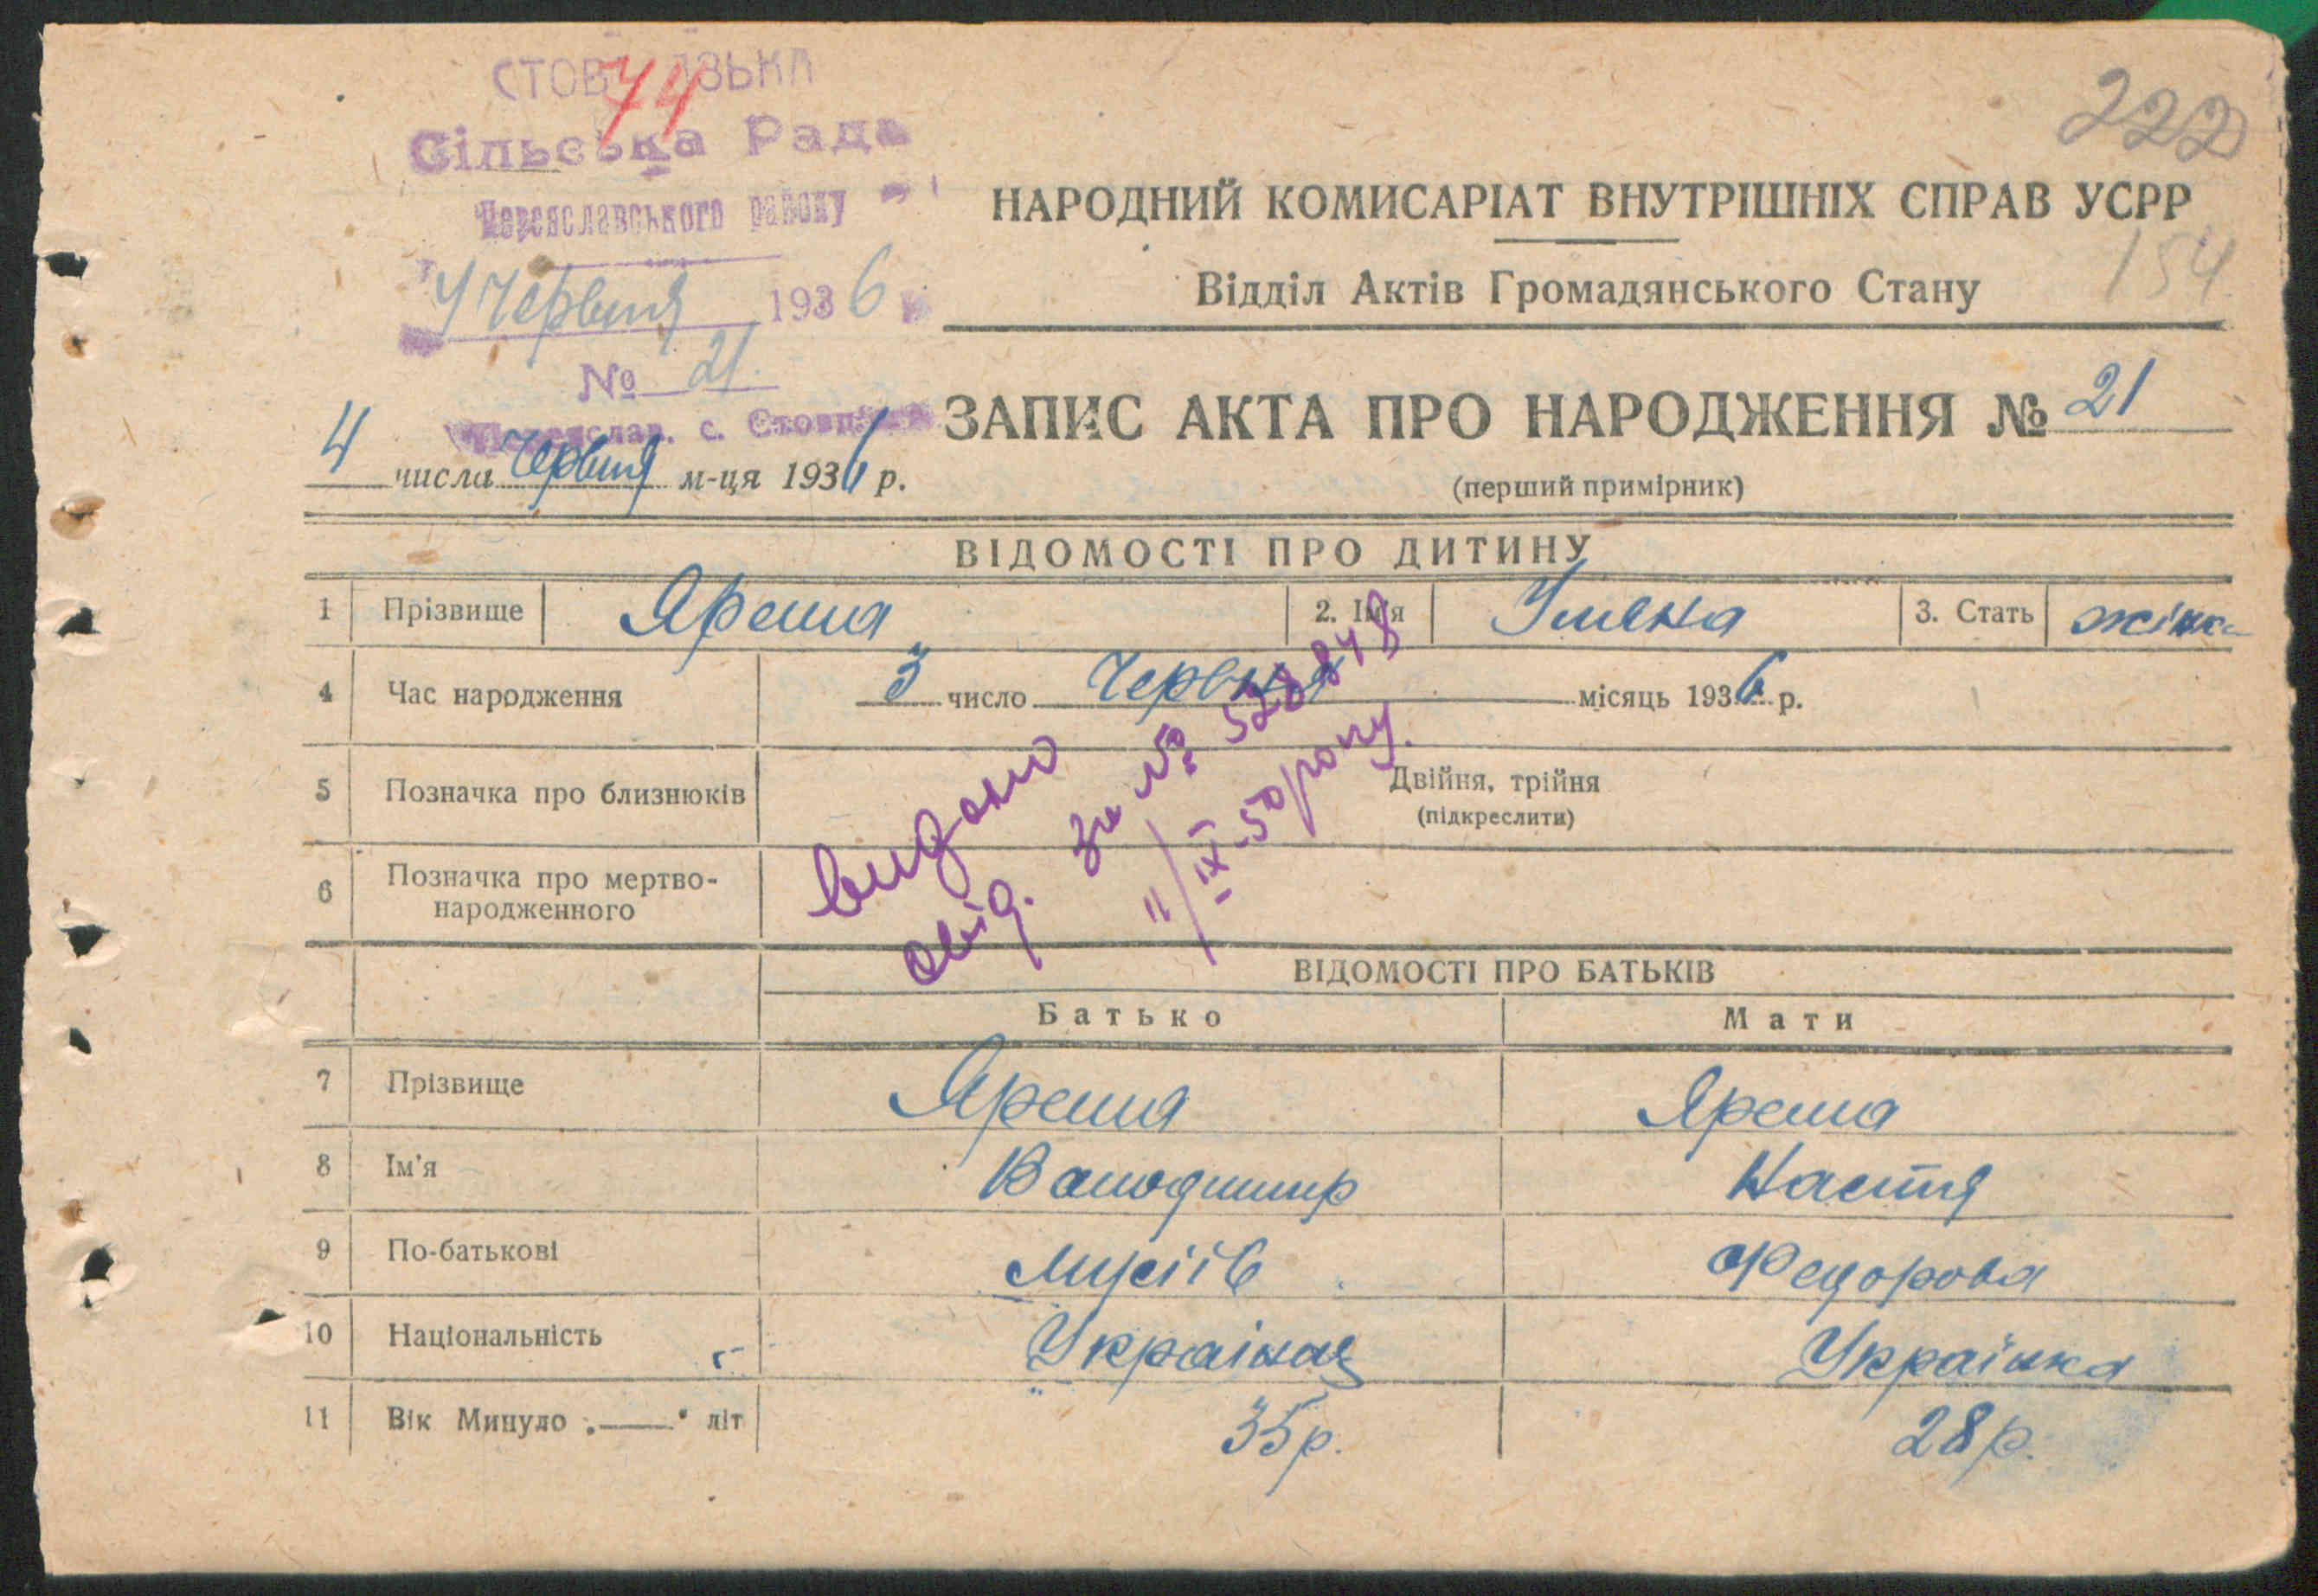 74
Сільська Рада
Переяславського району
222
НАРОДНИЙ КОМИСАРІАТ ВНУТРІШНІХ СПРАВ УСРР
154
Відділ Актів Громадянського Стану
4 червня 1936
№ 21.
с.
ЗАПИС АКТА ПРО НАРОДЖЕННЯ № 21
4 числа червня м-ця 1936 р.
(перший примірник)
ВІДОМОСТІ ПРО ДИТИНУ
1 Прізвище Яреша 2. Ім'я Уляна 3. Стать жінк
4 Час народження 3 число Червня місяць 1936 р.
5 Позначка про близнюків Двійня, трійня
(підкреслити)
6 Позначка про мертво-
народженного
видано
свід. за № 528848
11/IX-50 року.
ВІДОМОСТІ ПРО БАТЬКІВ
Батько Мати
7 Прізвище Яреша Яреша
8 Ім'я Володимир Настя
9 По-батькові Мусіїв Федорова
10 Національність Українец Українка
11 Вік Минуло літ 35р. 28р.